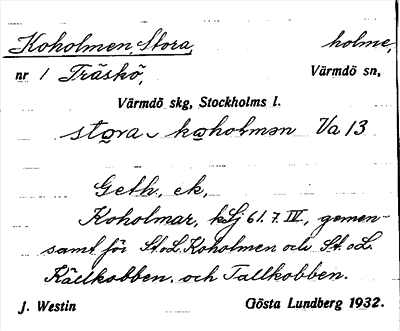 Koholmen, Stora, holme,
nr 1 Träskö, Värmdö sn,
Värmdö skg, Stockholms l.
stora koholmən Va 13
Geth. ek,
Koholmar, 61.7.IV, gemen-
samt för St.o.L. Koholmen och St.o.L.
Källkobben. och Tallkobben.
J. Westin Gösta Lundberg 1932.